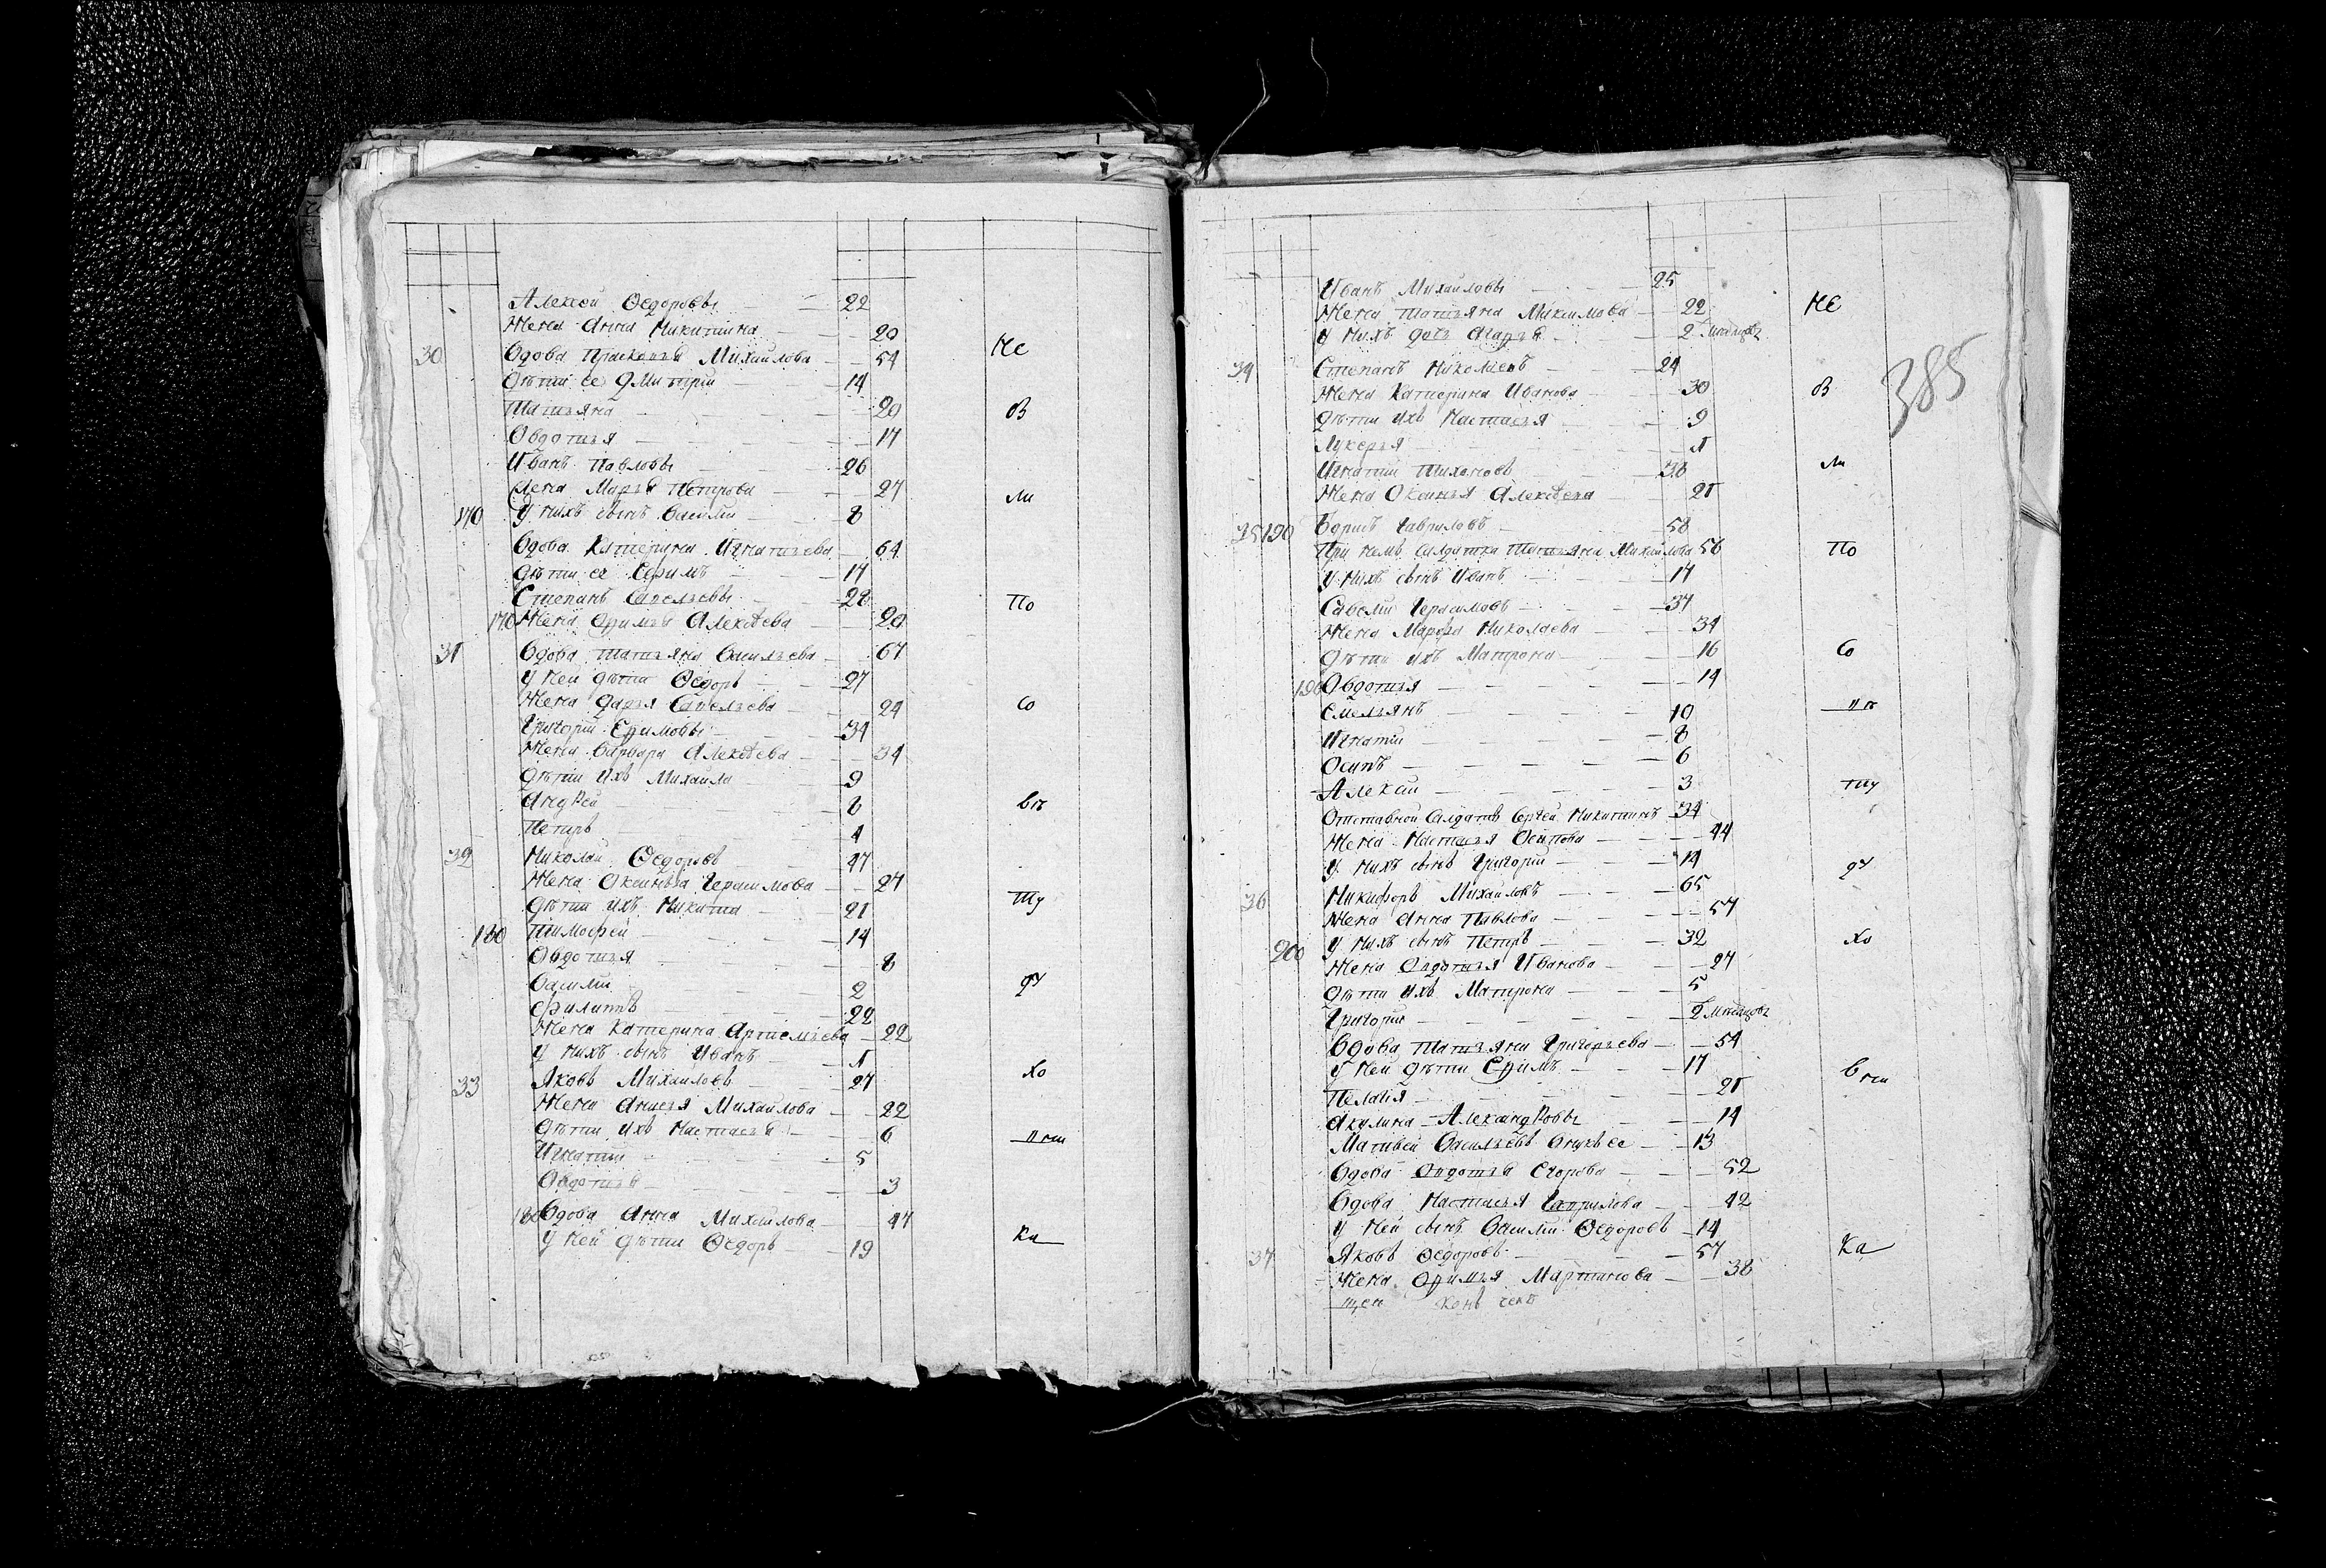 Алексей Ѳедоровъ — 22
Жена Анна Никитина — 20
30 Вдова Прасковья Михайлова — 54 Не
Дѣти ее Дмитрий — 14
Татьяна — 20 В
Овдотья — 17
Иванъ Павловъ — 26
Жена Марья Петрова — 27 ли
170 У нихъ сынъ Василий — 8
Вдова Катерина Игнатьева — 64
Дѣти ее Ефимъ — 17
Степанъ Савельевъ — 28 По
Жена Офимья Алексѣева — 20
31 Вдова Татьяна Васильева — 67
У ней дѣти Ѳедоръ — 27
Жена Дарья Савельева — 24 Со
Григорий Ефимовъ — 34
Жена Варвара Алексѣева — 34
Дѣти ихъ Михайла — 9
Андрей — 8 вѣ
Петръ — 4
32 Николай Ѳедоровъ — 47
Жена Оксинья Герасимова — 27
Дѣти ихъ Никита — 21 ту
180 Тимофей — 14
Овдотья — 8
Василий — 2 дЧ
Филиппъ — 22
Жена Катерина Артемьева — 22
У нихъ сынъ Иванъ — 1
33 Яковъ Михайловъ — 27 Хо
Жена Анисья Михайлова — 22
Дѣти ихъ Настасья — 6
Игнатий — 5
Овдотья — 3
Вдова Анна Михайлова — 47
У ней дѣти Ѳедоръ — 19 Ка
Иванъ Михайловъ — 25
Жена Татьяна Максимова — 22 НЕ
У нихъ дочь Агафья — 2 Мѣсяцовъ
385
34 Степанъ Николаевъ — 24
Жена Катерина Иванова — 30 В
Дѣти ихъ Настасья — 9
Лукерья — 1
Игнатий Тихоновъ — 38 ли
Жена Оксинья Алексѣева — 21
35 190 Борисъ Гавриловъ — 58
При немъ Салдатка Татьяна Михайлова 56 По
У нихъ сынъ Иванъ — 17
Савелий Герасимовъ — 37
Жена Марфа Николаева — 34
Дѣти ихъ Матрона — 16 Со
Овдотья — 14
Емельянъ — 10
Игнатий — 8
Осипъ — 6
Алексей — 3 ту
Отставной Салдатъ Сергей Никитинъ 34
Жена Настасья Осипова — 44
У нихъ сынъ Григорий — 14 дЧ
36 Никифоръ Михайловъ — 65
Жена Анна Павлова — 57
200 У нихъ сынъ Петръ — 32 Хо
Жена Овдотья Иванова — 27
Дѣти ихъ Матрона — 5
Григорий — 2 Мѣсяцовъ
Вдова Татьяна Григорьева — 54
У ней дѣти Ефимъ — 17
Пелагия — 21
Акулина Александровы — 14
Матвей Васильевъ внукъ ее — 13
Вдова Овдотья Егорова — 52
Вдова Настасья Гаврилова — 42
У ней сынъ Василий Ѳедоровъ — 14
37 Яковъ Ѳедоровъ — 57 Ка
Жена Офимья Мартинова — 38